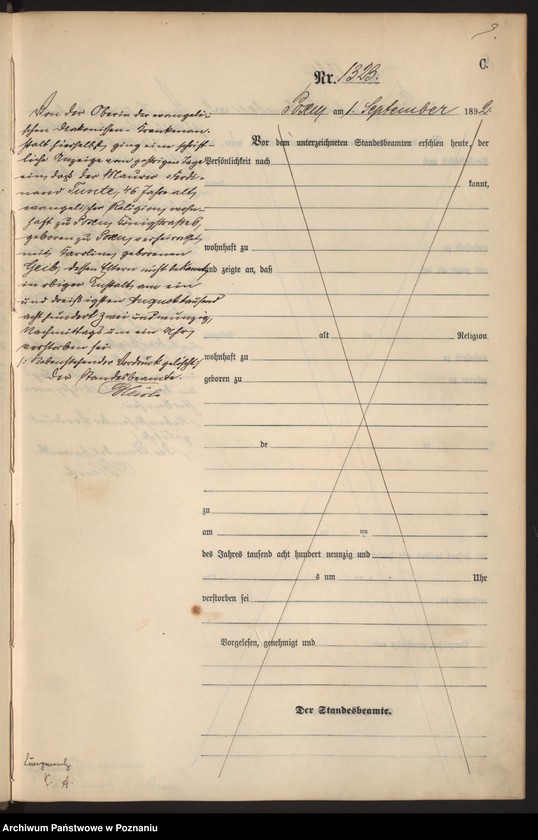 C.
Nr. 1323.
Posen am 1. September 1892.
Von der Oberin der evangeli-
schen Diakonissen-Krankenan-
stalt hierselbst, ging eine schrift-
liche Anzeige vom gestrigen Tage
ein, daß der Maurer Ferdi-
nand 46 Jahre alt,
evangelischer Religion, wohn-
haft zu Posen, Königstraße 6,
geboren zu Posen, verheirathet
mit Karoline geborenen
dessen Eltern nicht bekannt,
in obiger Anstalt am ein
und dreißigsten August tausend
acht hundert zwei und neunzig,
Nachmittags um ein Uhr,
verstorben sei.
/: Nebenstehender Vordruck gelöscht :/
Der Standesbeamte.
Vor dem unterzeichneten Standesbeamten erschien heute, der
Persönlichkeit nach
kannt,
wohnhaft zu
und zeigte an, daß
alt Religion
wohnhaft zu
geboren zu
de
zu
am ten
des Jahres tausend acht hundert neunzig und
s um Uhr
verstorben sei
Vorgelesen, genehmigt und
Der Standesbeamte.
Archiwum Państwowe w Poznaniu